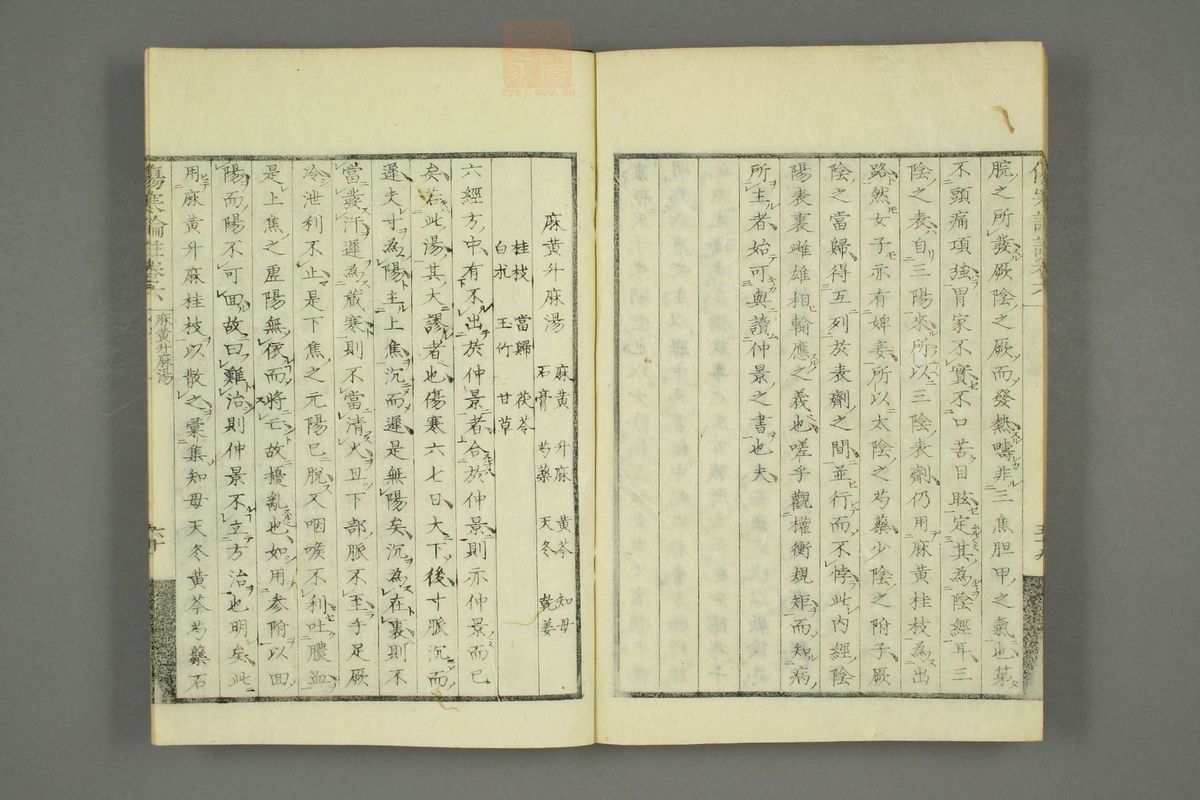 脘之所發厥陰之厥而發熱疇非三焦胆甲之氣也第
不頭痛項強胃家不實不口苦目眩定其為陰經耳三
陰之表自三陽來所以三陰表劑仍用麻黃桂枝為出
路然女子亦有婢妾所以太陰之芍藥少陰之附子厥
陰之當歸得互列於表劑之間並行而不悖此內經陰
陽表裏雌雄相輸應之義也嗟乎觀權衡規矩而知病
所主者始可與讀仲景之書也夫
麻黃升麻湯 麻黃 升麻 黃芩 知母
石膏 芍藥 天冬 乾姜
桂枝 當歸 茯苓
白朮 玉竹 甘草
六經方中有不出於仲景者合於仲景則亦仲景而已
矣若此湯其大謬者也傷寒六七日大下後寸脈沉而
遲夫寸為陽主上焦沉而遲是無陽矣沉為在裏則不
當發汗遲為藏寒則不當清火且下部脈不至手足厥
冷泄利不止是下焦之元陽已脫又咽喉不利吐膿血
是上焦之虛陽無依而將亡故擾亂也如用參附以回
陽而陽不可回故曰難治則仲景不立方治也明矣此
用麻黃升麻桂枝以散之彙集知母天冬黃芩芍藥石
傷寒論註卷六 麻黃升麻湯 六十